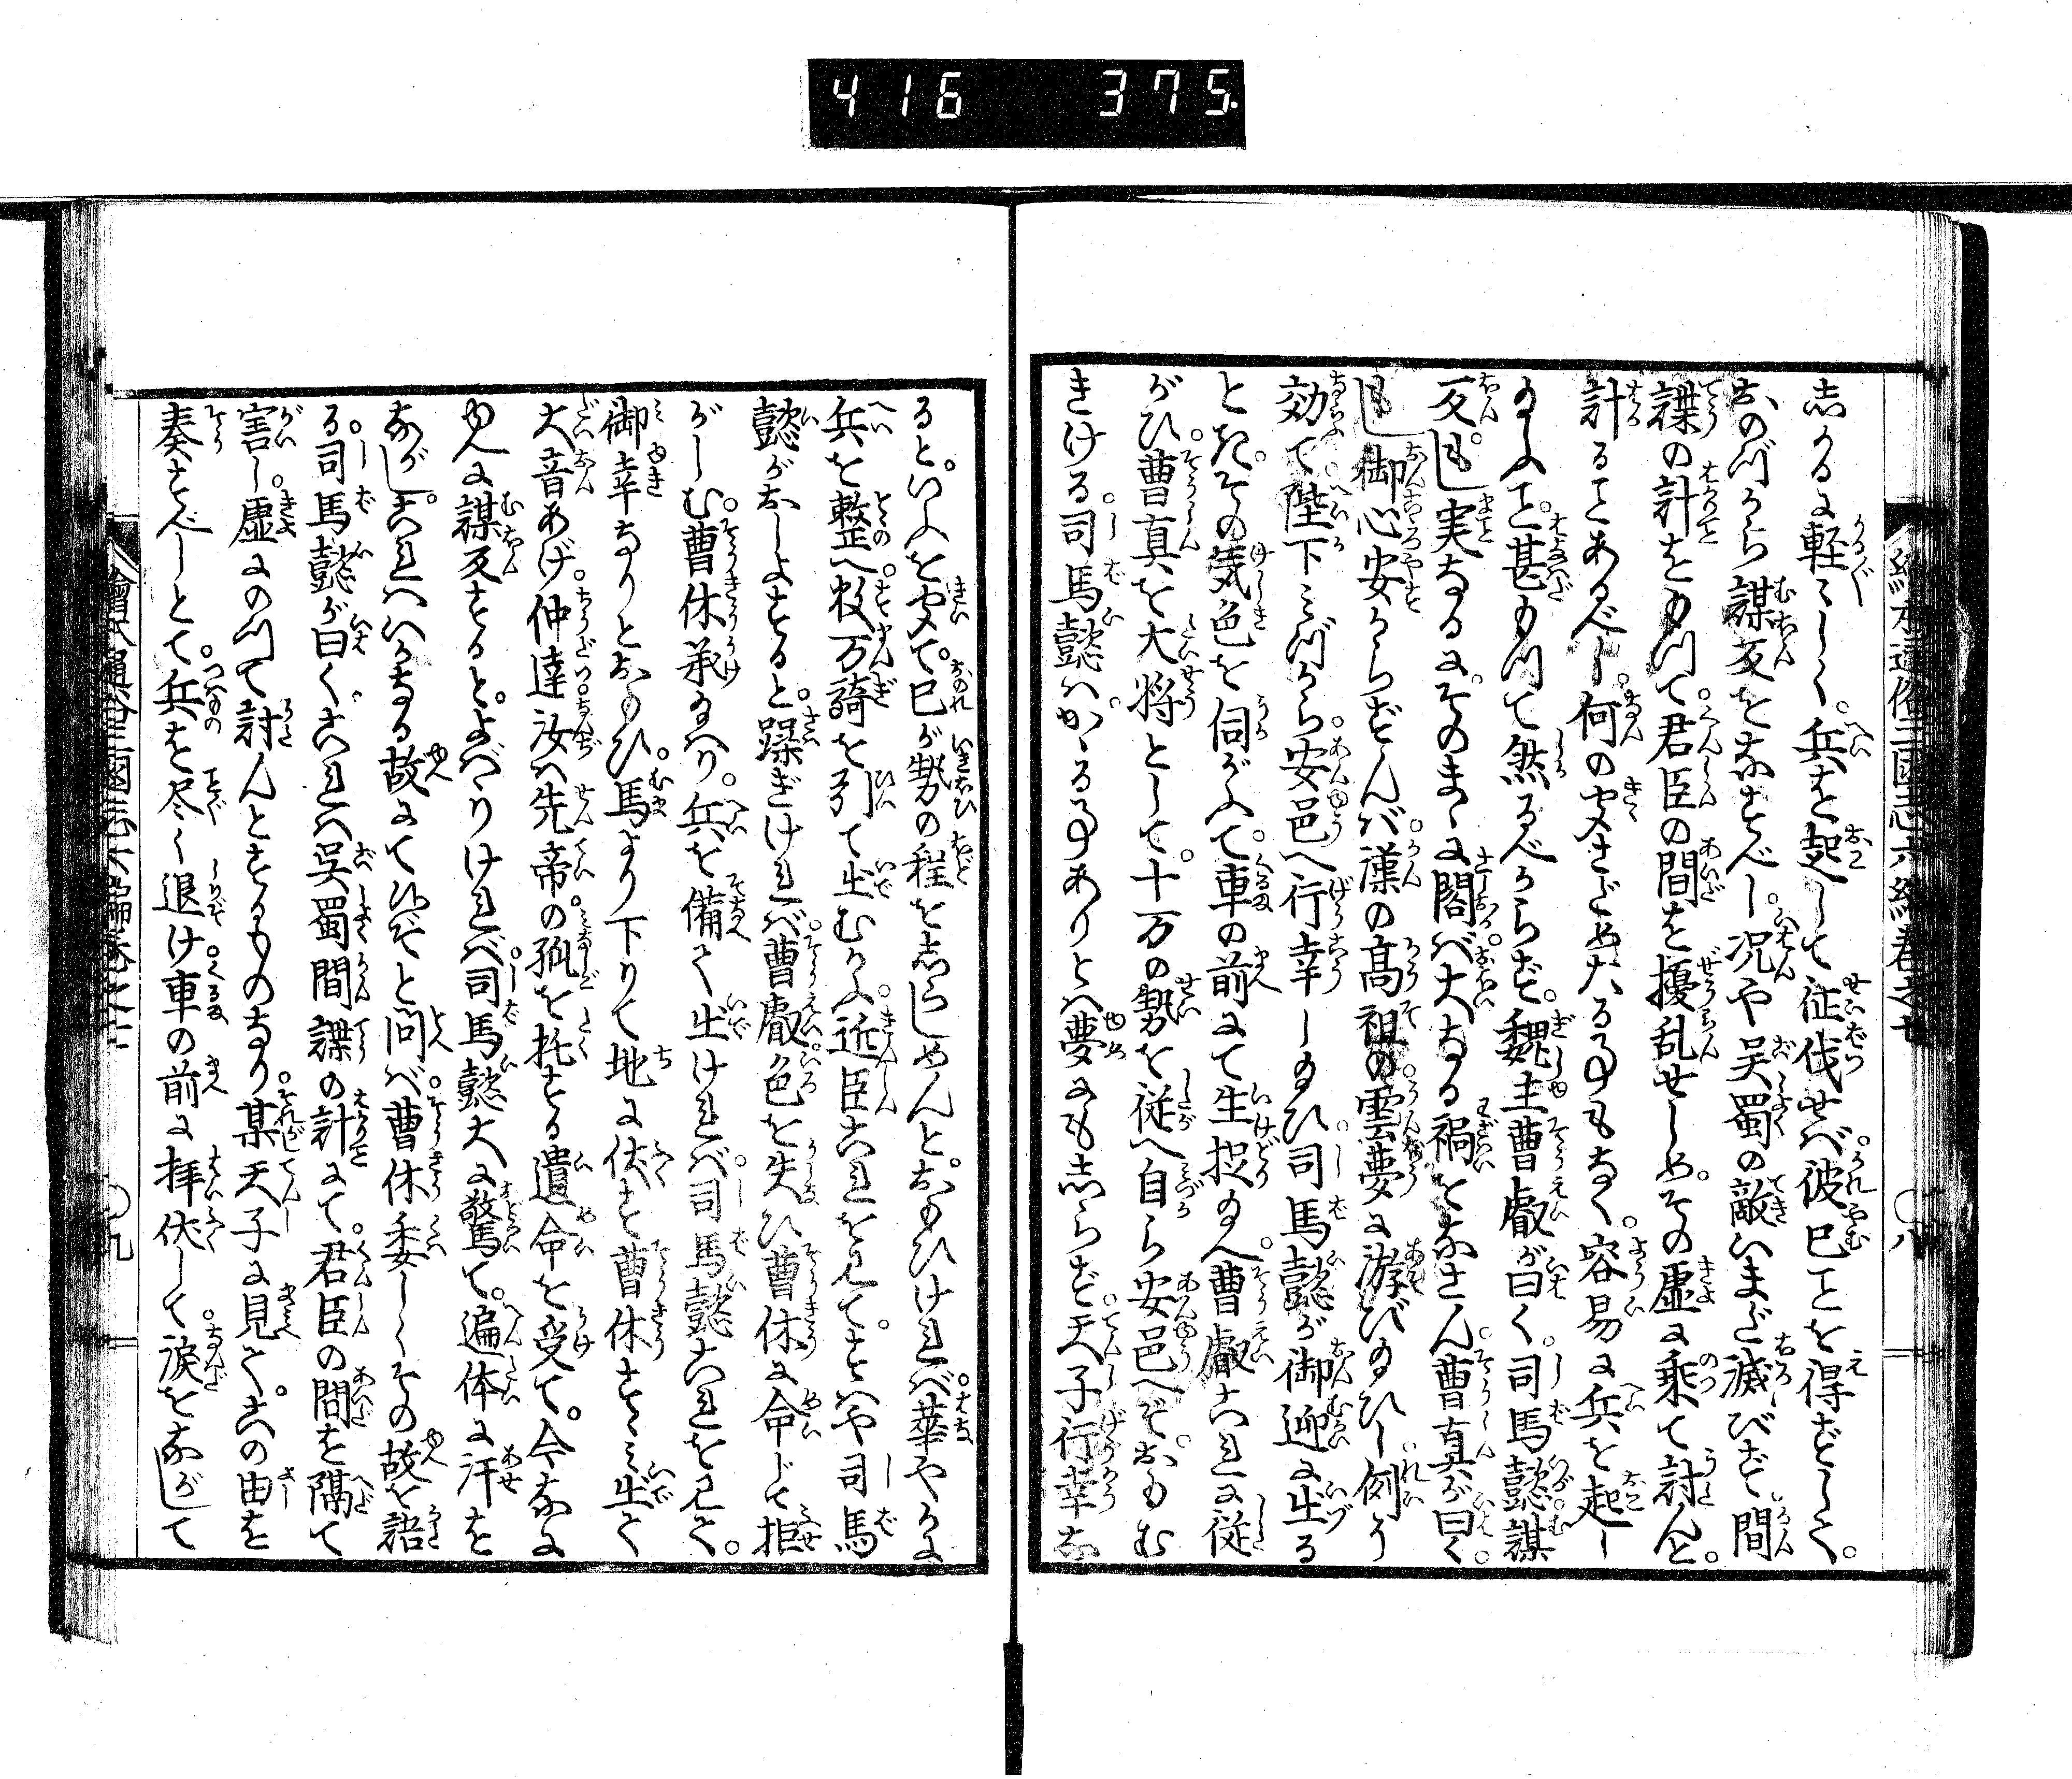 416 375.
繪本通俗三国志六編巻之七
〇八
志かるに軽〻しく。兵を起して征伐せバ。彼已ことを得ずして。
おのづから謀反をなすべし。况や吴蜀の敵いまだ滅びずして間
諜の計をもつて。君臣の間を擾乱せしめ。その虚に乗て討んと。
計ることあるべし。何の実否もさだめたる事もなく。容易に兵を起し
玉ふこと。甚もつて然るべからず。魏主曹叡が曰く。司馬懿謀
反もし実なるに。そのまゝに閣バ大なる禍をなさん。曹真が曰く。
もし御心安からずんバ。漢の高祖の雲夢に游び玉ひし例に
効て。陛下みづから。安邑へ行幸し玉ひ。司馬懿が御迎に出る
ときその気色を伺がふて。車の前にて生捉玉へ。曹叡これに従
がひ。曹真を大将として。十万の勢を従へ自ら安邑へぞおもむ
きける。司馬懿ハかゝる事ありとハ夢にも志らず。天子行幸な
るといふを聞て。己が勢の程を志らしめんと。おもひければ。華やかに
兵を整へ。数万騎を引て出むかふ。近臣これを见て。すハや司馬
懿がおしよすると。躁ぎければ。曹叡色を失ひ。曹休に命じて拒
がしむ。曹休承玉ハり。兵を備て出ければ。司馬懿これを见て。
御幸なりとおもひ。馬より下りて地に伏す。曹休すゝみ出て
大音あげ。仲達汝ハ先帝の。孤を托する遺命を受て。今なに
ゆへに謀反すると。よバゝりければ。司馬懿大に驚て。遍体に汗を
ながし。これハいかなる故にて候ぞと問バ。曹休委しくその故を語
る。司馬懿が曰く。これハ吴蜀間諜の計にて。君臣の間を隔て
害し。虚にのつて討んとするものなり。某天子に見て。この由を
奏すべしとて。兵を尽く退け。車の前に拝伏して。涙をながして
繪本通俗三國志六編巻之七
〇九